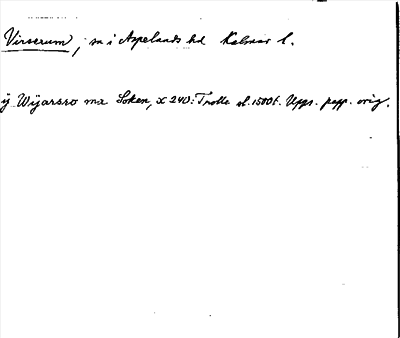 Virserum, sn i Aspelands hd Kalmar l.
ÿ Wÿarsro ma Soken, X 240: Trolle sl. 1500t. Upps. papp. orig.